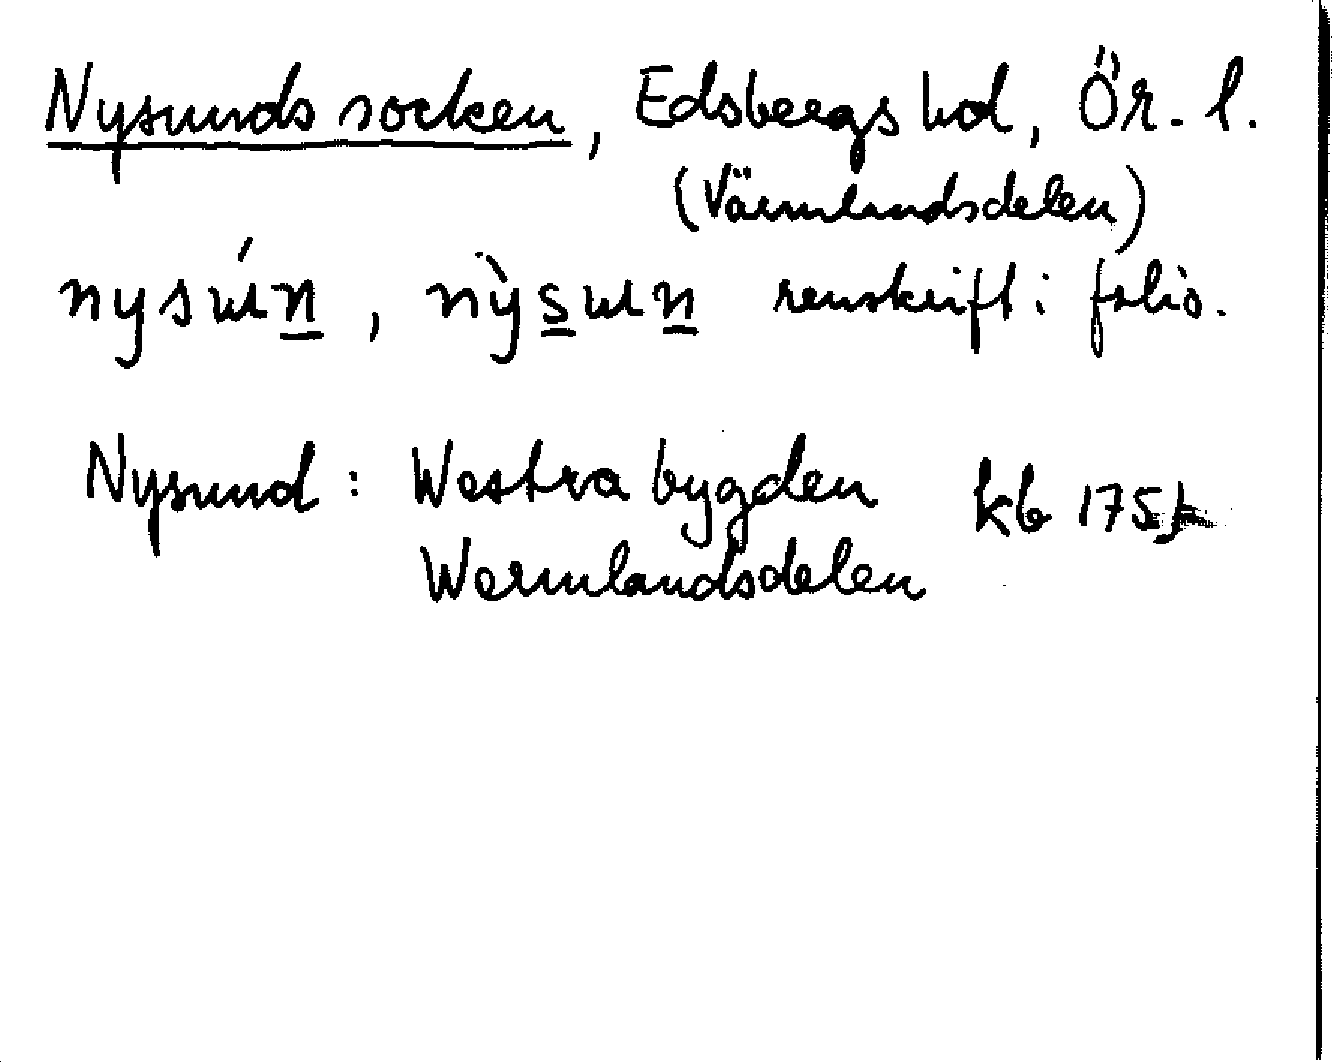 Nysunds socken, Edsbergs hd, Ör. l.
(Värmlandsdelen)
nysún, nỳsun renskrift i folio.
Nysund: Westra bygden kb
Wermlandsdelen